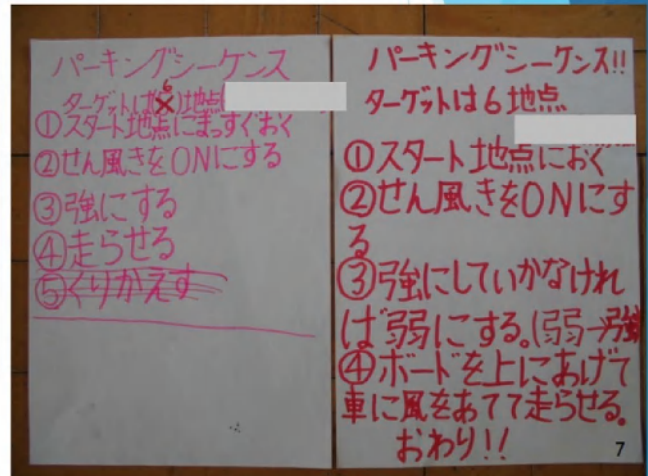 パーキングシーケンス
6
ターゲットは(X)地点(
①スタート地点にまっすぐおく
②せん風きをONにする
③強にする
④走らせる
⑤くりかえす
パーキングシーケンス!!
ターゲットは6地点
①スタート地点におく
②せん風きをONにす
る
③強にしていかなけれ
ば弱にする。(弱→強
④ボードを上にあげて
車に風をあてて走らせる。
おわり!!
7